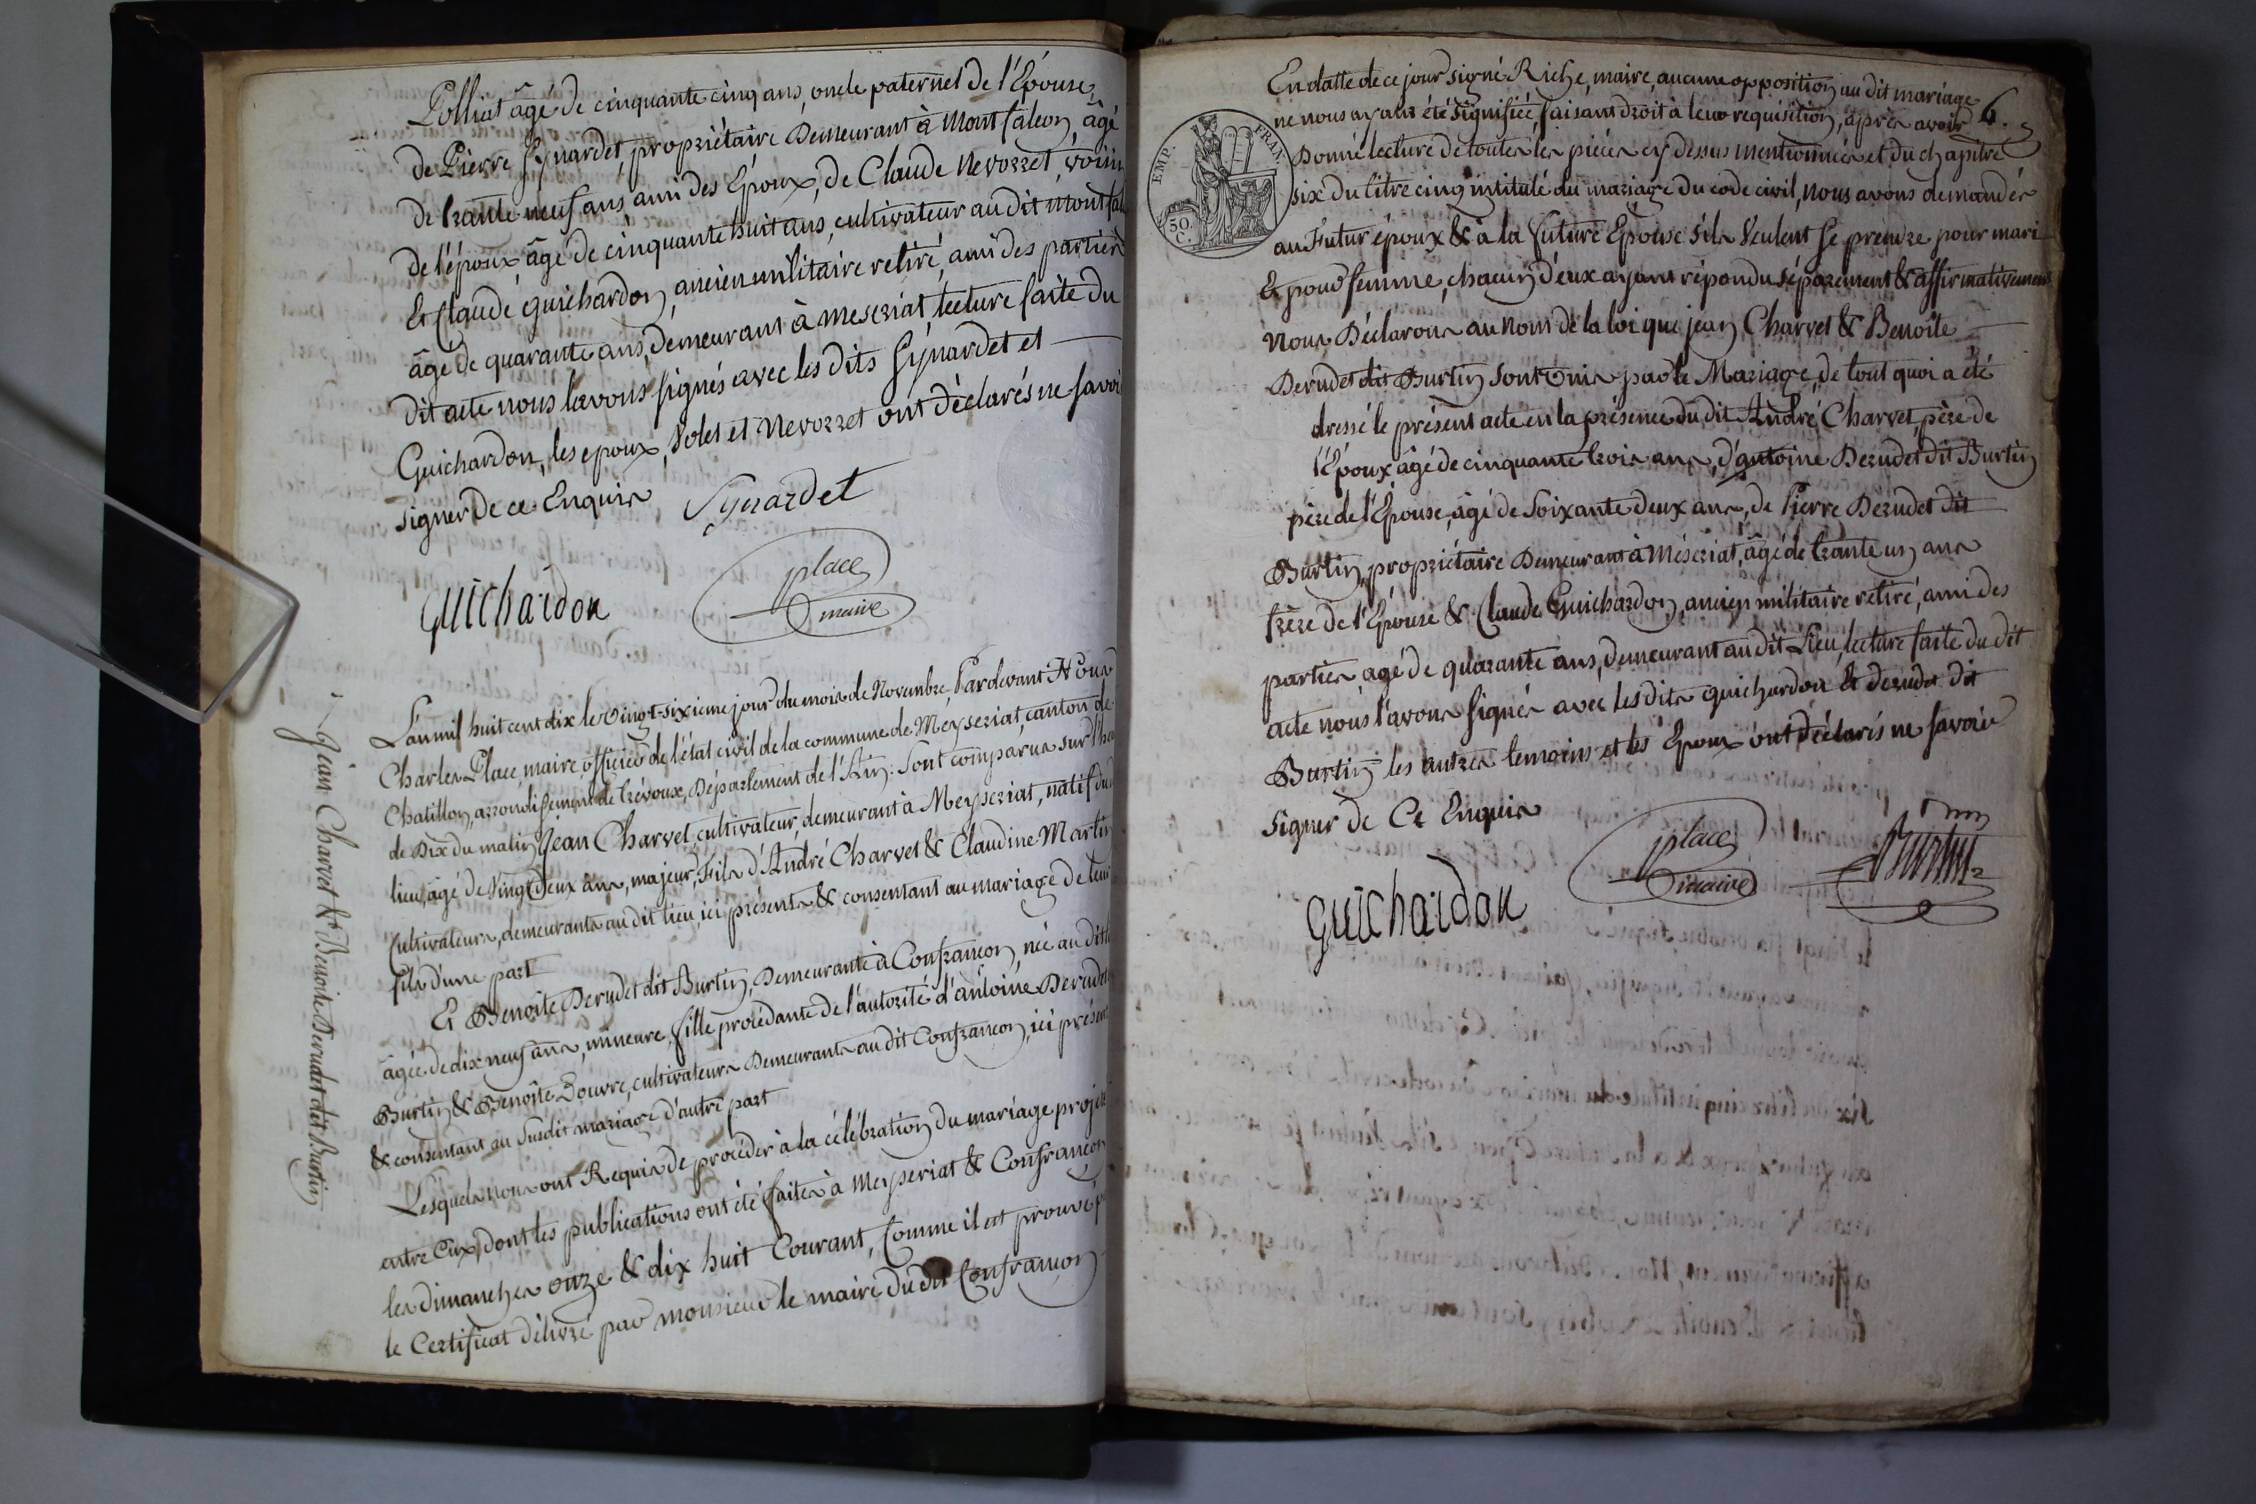 Polliat âgé de cinquante cinq ans, oncle paternel de l'Epouse,
de Pierre Synardet, propriétaire Demeurant à Montfalcon, âgé
de trante neuf ans ami des Epoux, de Claude Nevorret, voisin
de l'époux âgé de cinquante huit ans, cultivateur au dit Montfal
Et Claude Guichardon, ancien militaire retiré, ami des parties
âgé de quarante ans, demeurant à Mezeriat, lecture faite du
dit acte nous l'avons signés avec les dits Synardet et
Guichardon, les epoux, Volet et Nevorret ont déclarés ne savoir
signer De ce Enquis
Synardet
Guichardon
place
maire
Jean Charvet & Benoite Derudet dit Burtin
L'an mil huit cent dix le Vingt-sixieme jour du mois de Novembre, Pardevant Nous
Charles Place, maire officier de l'état civil de la commune de Meyzeriat, canton de
Chatillon, arrondissement de Trévoux, Département de l'Ain: Sont comparus sur l'heure
de Dix du matin Jean Charvet, cultivateur, demeurant à Meyzeriat, natif du
lieu, âgé de Vingt Deux ans, majeur, Fils d'André Charvet & Claudine Martin
Cultivateurs, demeurants au dit lieu, ici présents & consentant au mariage de leur
fils d'une part
Et Benoite Derudet dit Burtin, Demeurante à Confrançon, née au dit
âgée de dix neuf ans, mineure, fille procédante de l'autorité d'antoine Derudet
Burtin & Benoîte Douvre, cultivateurs Demeurants au dit Confrançon, ici présens
& consentant au Susdit mariage d'autre part
Lesquels nous ont Requis de procéder à la célébration du mariage projeté
entre Eux, dont les publications ont été faites à Meyzeriat & Confrançon
les dimanches onze & dix huit Courant, Comme il est prouvé p
le Certificat délivré par monsieur le maire du dit Confrançon
6.
EMP. FRAN.
50. C.
En datte de ce jour signé Riche, maire, aucune opposition au dit mariage
ne nous ayant été signifiée, faisant droit à leur requisition, après avoir
Donné lecture de toutes les pièces cy dessus mentionnées et du chapitre
six du titre cinq intitulé du mariage du code civil, nous avons demandés
au Futur époux & à la future Epouse s'ils veulent se prendre pour mari
Et pour femme, chacun d'eux ayant répondu séparement & affirmativement
Nous Déclarons au nom de la loi que jean Charvet & Benoîte
Derudet dit Burtin Sont Unis par le Mariage, de tout quoi a été
dressé le présent acte en la présence du dit André Charvet, père de
l'Epoux âgé de cinquante trois ans, d'antoine Derudet dit Burtin
père de l'Epouse, âgé de Soixante deux ans, de Pierre Derudet dit
Burtin, propriétaire Demeurant à Mézeriat, âgé de trante un ans
frère de l'Epouse & Claude Guichardon, ancien militaire retiré, ami des
parties, agé de quarante ans, demeurant au dit Lieu, lecture faite du dit
acte nous l'avons signés avec les dits guichardon et derudet dit
Burtin, les autres temoins et les Epoux ont déclarés ne savoir
signer de Ce Enquis
place
maire
Burtin
Guichardon